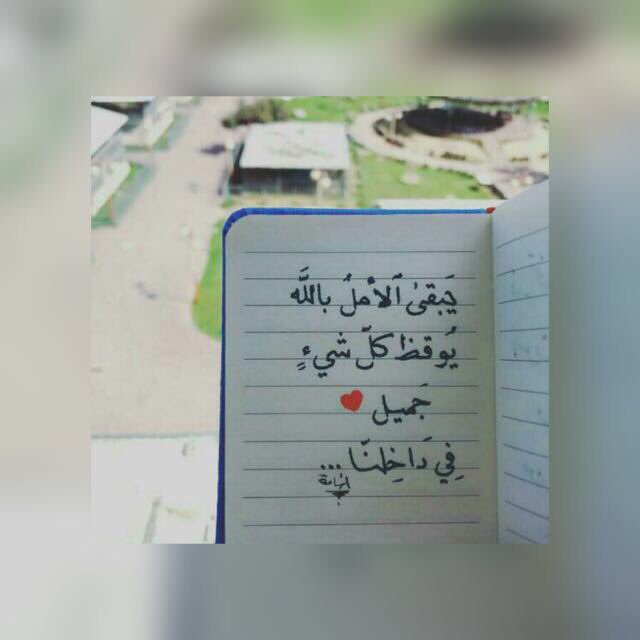 يَبقىٰ ٱلأملُ باللَّه
يُوقظ كلّ شيءٍ
جَميل
فِي دَاخِلنّا ...